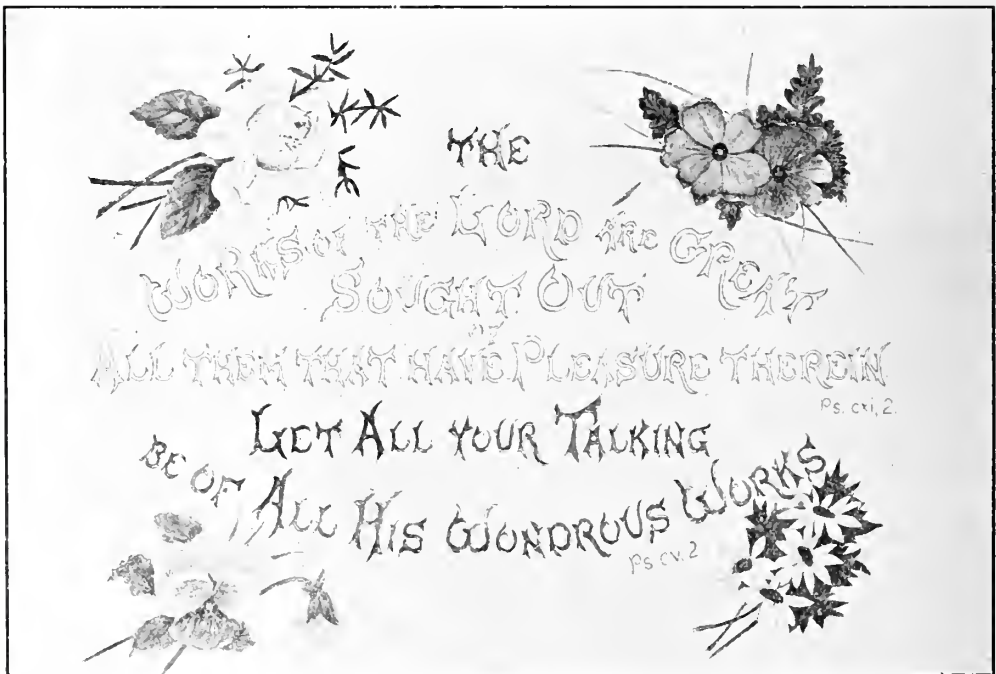 THE
WORKS OF THE LORD ARE GREAT
SOUGHT OUT
OF
ALL THEM THAT HAVE PLEASURE THEREIN
Ps. cxi, 2.
LET ALL YOUR TALKING
BE OF ALL HIS WONDROUS WORKS
Ps cv. 2